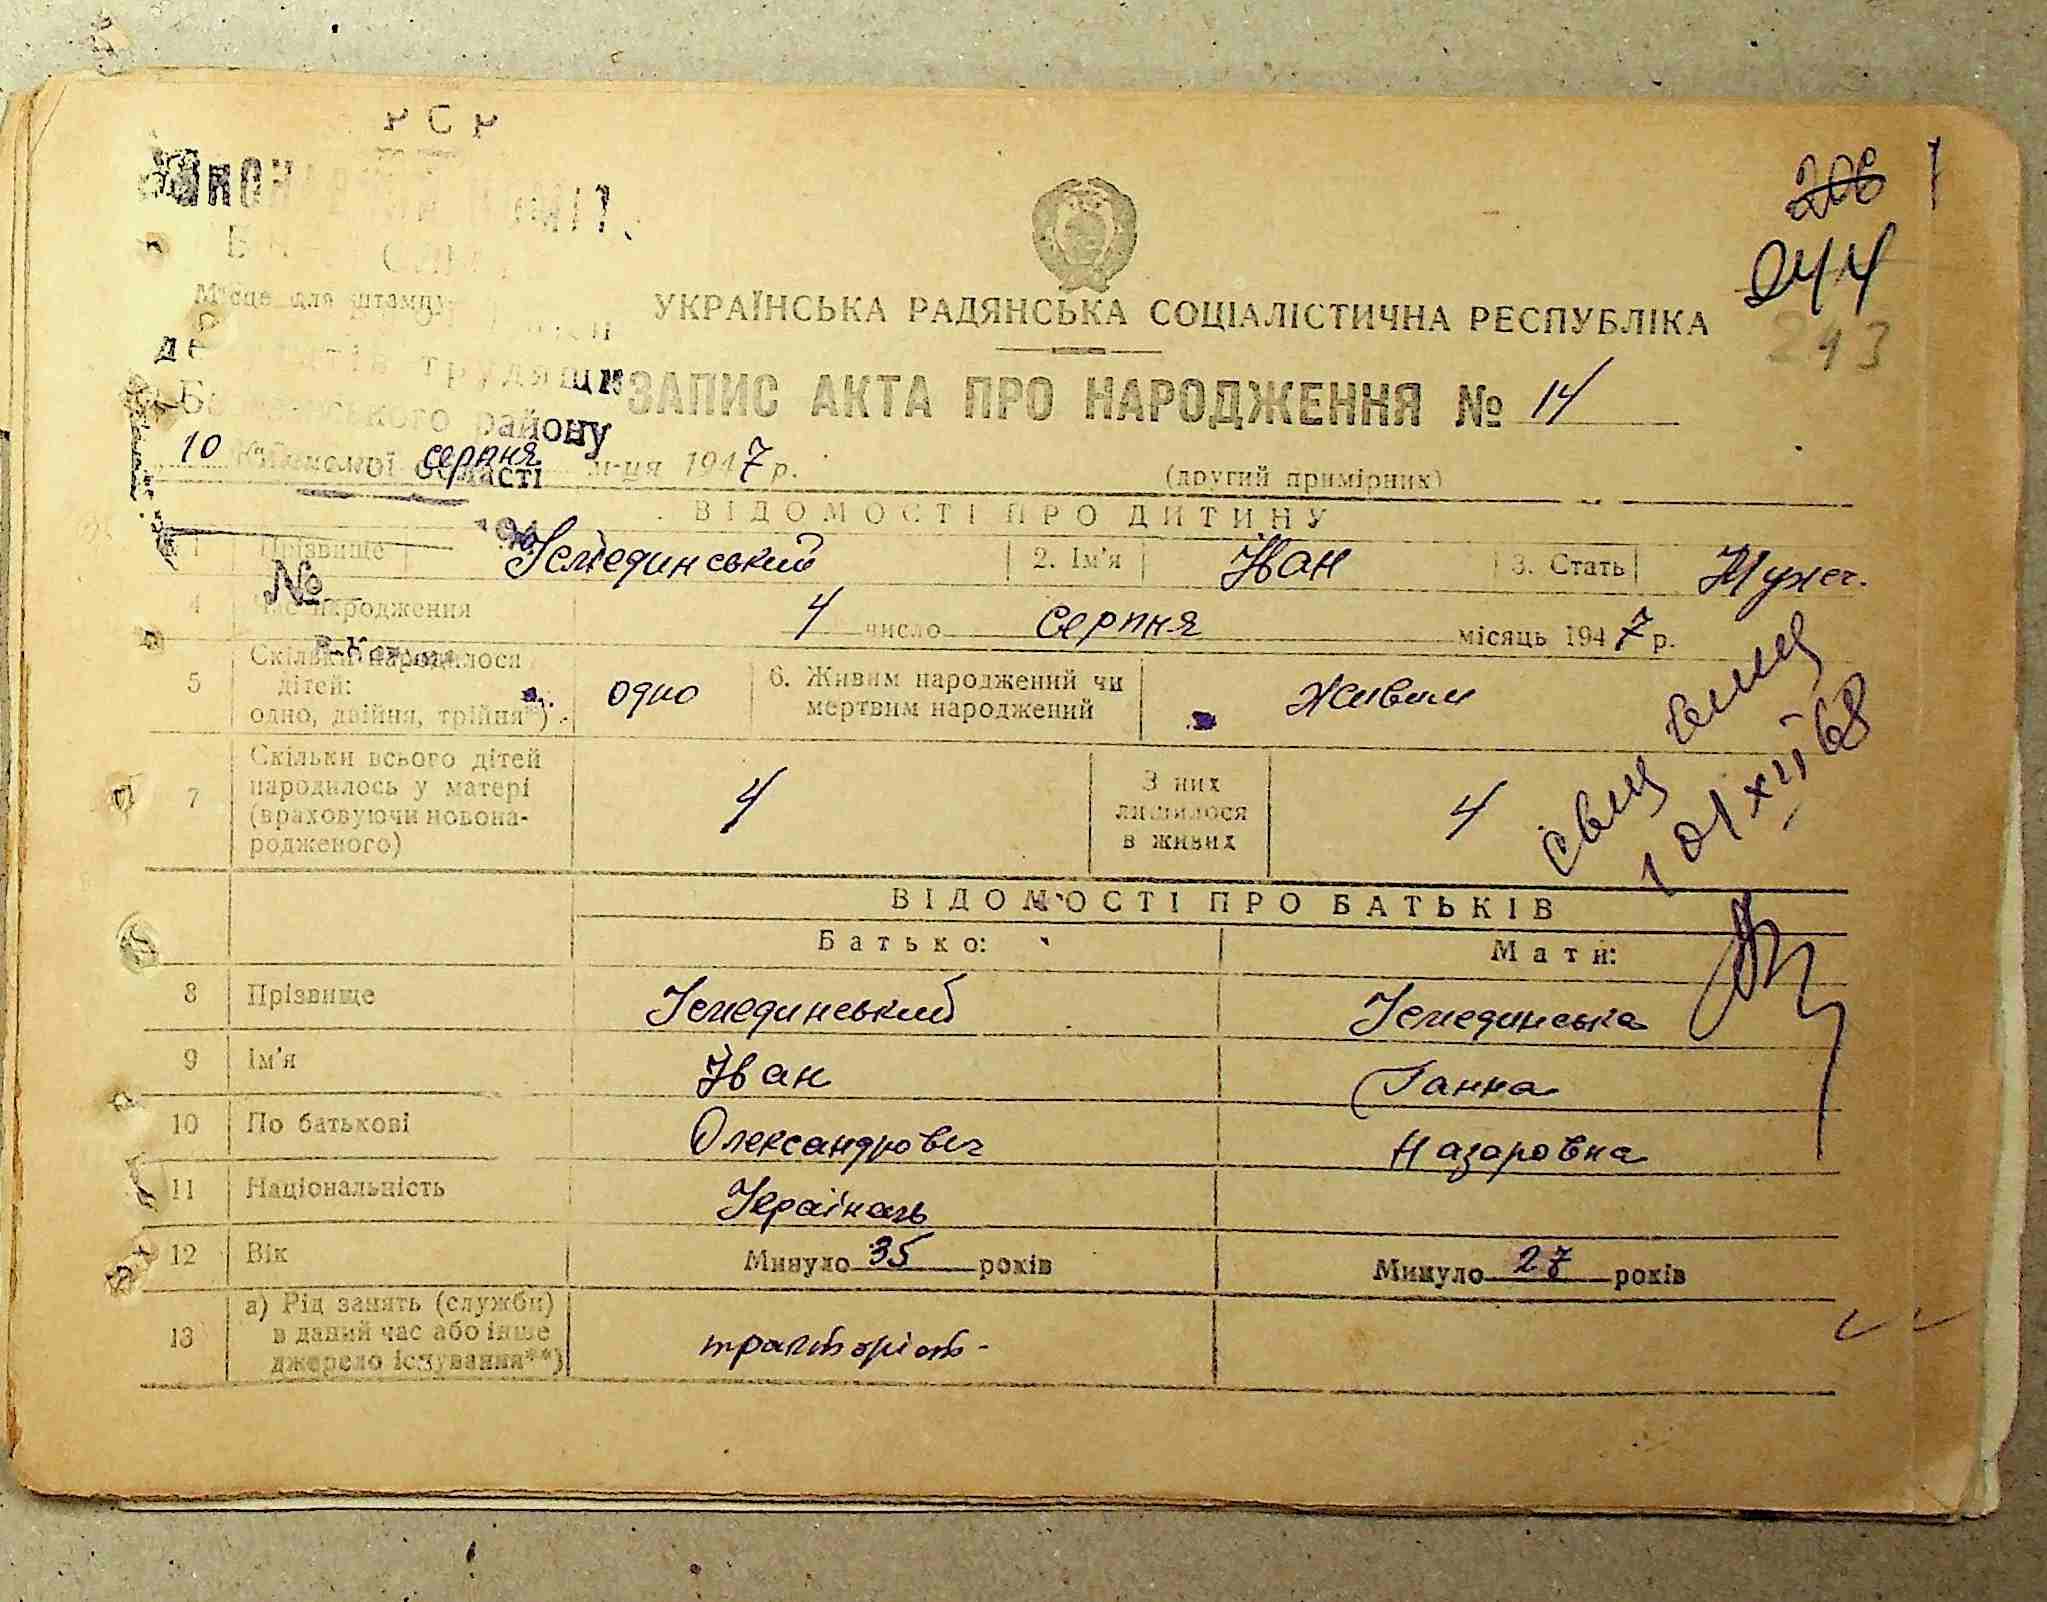 206
244
243
Місце для штампу
УКРАЇНСЬКА РАДЯНСЬКА СОЦІАЛІСТИЧНА РЕСПУБЛІКА
ЗАПИС АКТА ПРО НАРОДЖЕННЯ № 14
району
області
10 серпня м-ця 1947 р. (другий примірник)
ВІДОМОСТІ ПРО ДИТИНУ
1 Прізвище Усмединський 2. Ім'я Іван 3. Стать Мужч.
№
4 Час народження 4 число серпня місяць 1947 р.
5 Скільки народилося дітей: одно, двійня, трійня*) одно 6. Живим народжений чи мертвим народжений живим
7 Скільки всього дітей народилось у матері (враховуючи новонародженого) 4 З них лишилося в живих 4
ВІДОМОСТІ ПРО БАТЬКІВ
Батько: Мати:
8 Прізвище Усмединський Усмединська
9 Ім'я Іван Ганна
10 По батькові Олександрович Назаровна
11 Національність Українець
12 Вік Минуло 35 років Минуло 27 років
13 а) Рід занять (служби) в даний час або інше джерело існування**) тракторіст